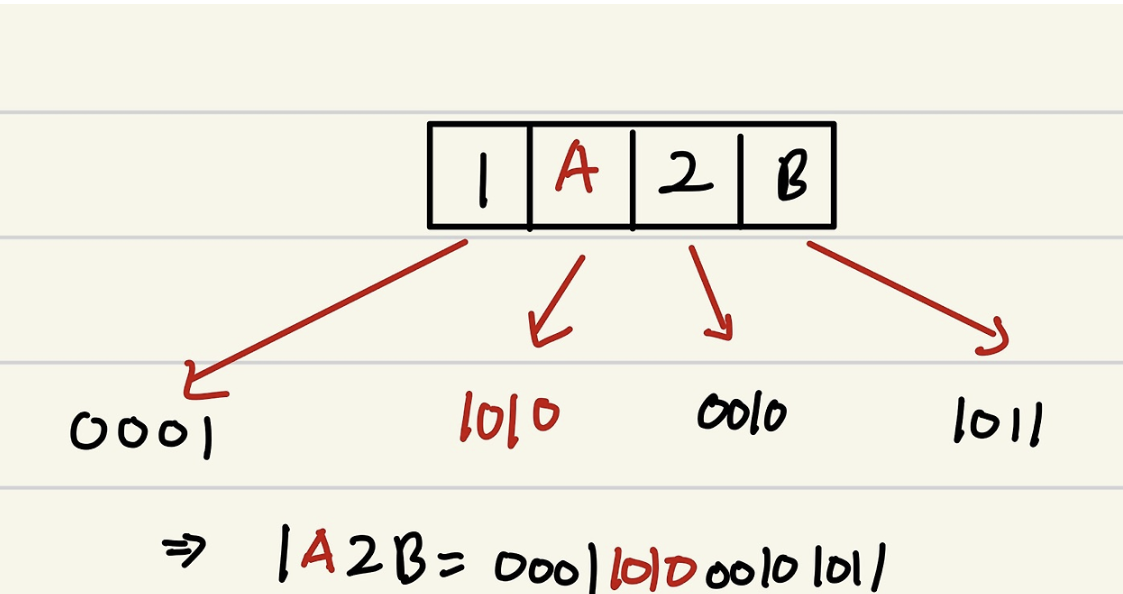 1 A 2 B
0001 1010 0010 1011
⇒ 1A2B = 0001101000101011